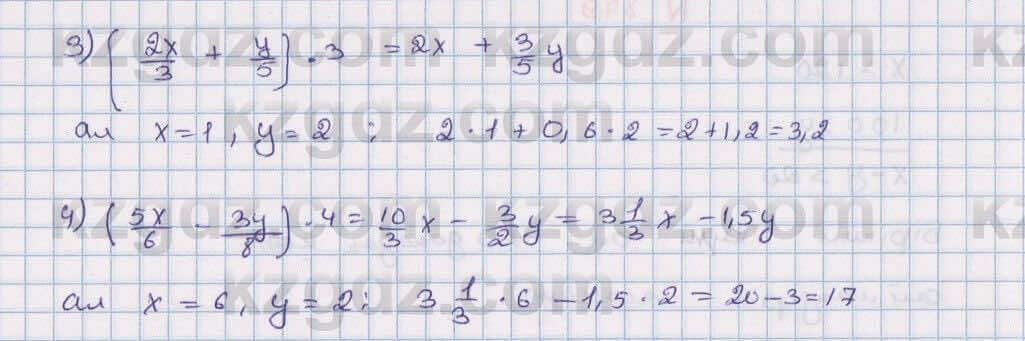 3) (2x/3 + y/5) · 3 = 2x + 3/5 y
ал x = 1, y = 2; 2 · 1 + 0,6 · 2 = 2 + 1,2 = 3,2
4) (5x/6 - 3y/8) · 4 = 10/3 x - 3/2 y = 3 1/3 x - 1,5y
ал x = 6, y = 2; 3 1/3 · 6 - 1,5 · 2 = 20 - 3 = 17
kzgdz.com